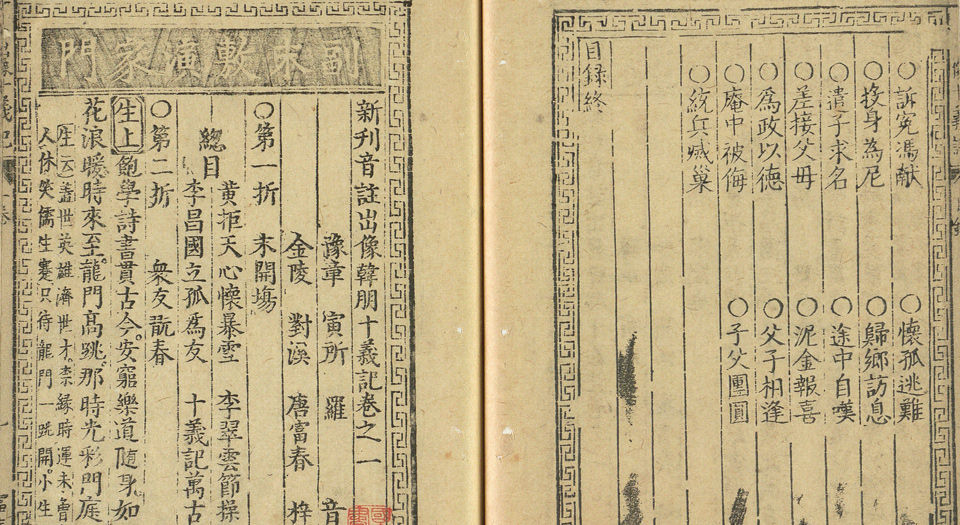 ○訴冤馮献 ○懷孤逃難
○投身為尼 ○歸鄉訪息
○遣子求名 ○途中自嘆
○差接父母 ○泥金報喜
○為政以德 ○父子相逢
○庵中被侮 ○子父團圓
○統兵滅巢
目録終
副末敷演家門
新刊音註出像韓朋十義記卷之一
豫章 寅所 羅 音
金陵 對溪 唐富春 梓
○第一折 末開塲
總目
黄拒天心懷暴雪 李翠雲節操
李昌國立孤爲友 十義記萬古
○第二折 衆友翫春
生上飽學詩書貫古今。安窮樂道随身。如
花浪暖時來至。龍門髙跳。那時光彩門庭
生云盖世英雄濟世才。柰縁時運未曾
人休笑儒生蹇只待龍門一跳開。小生